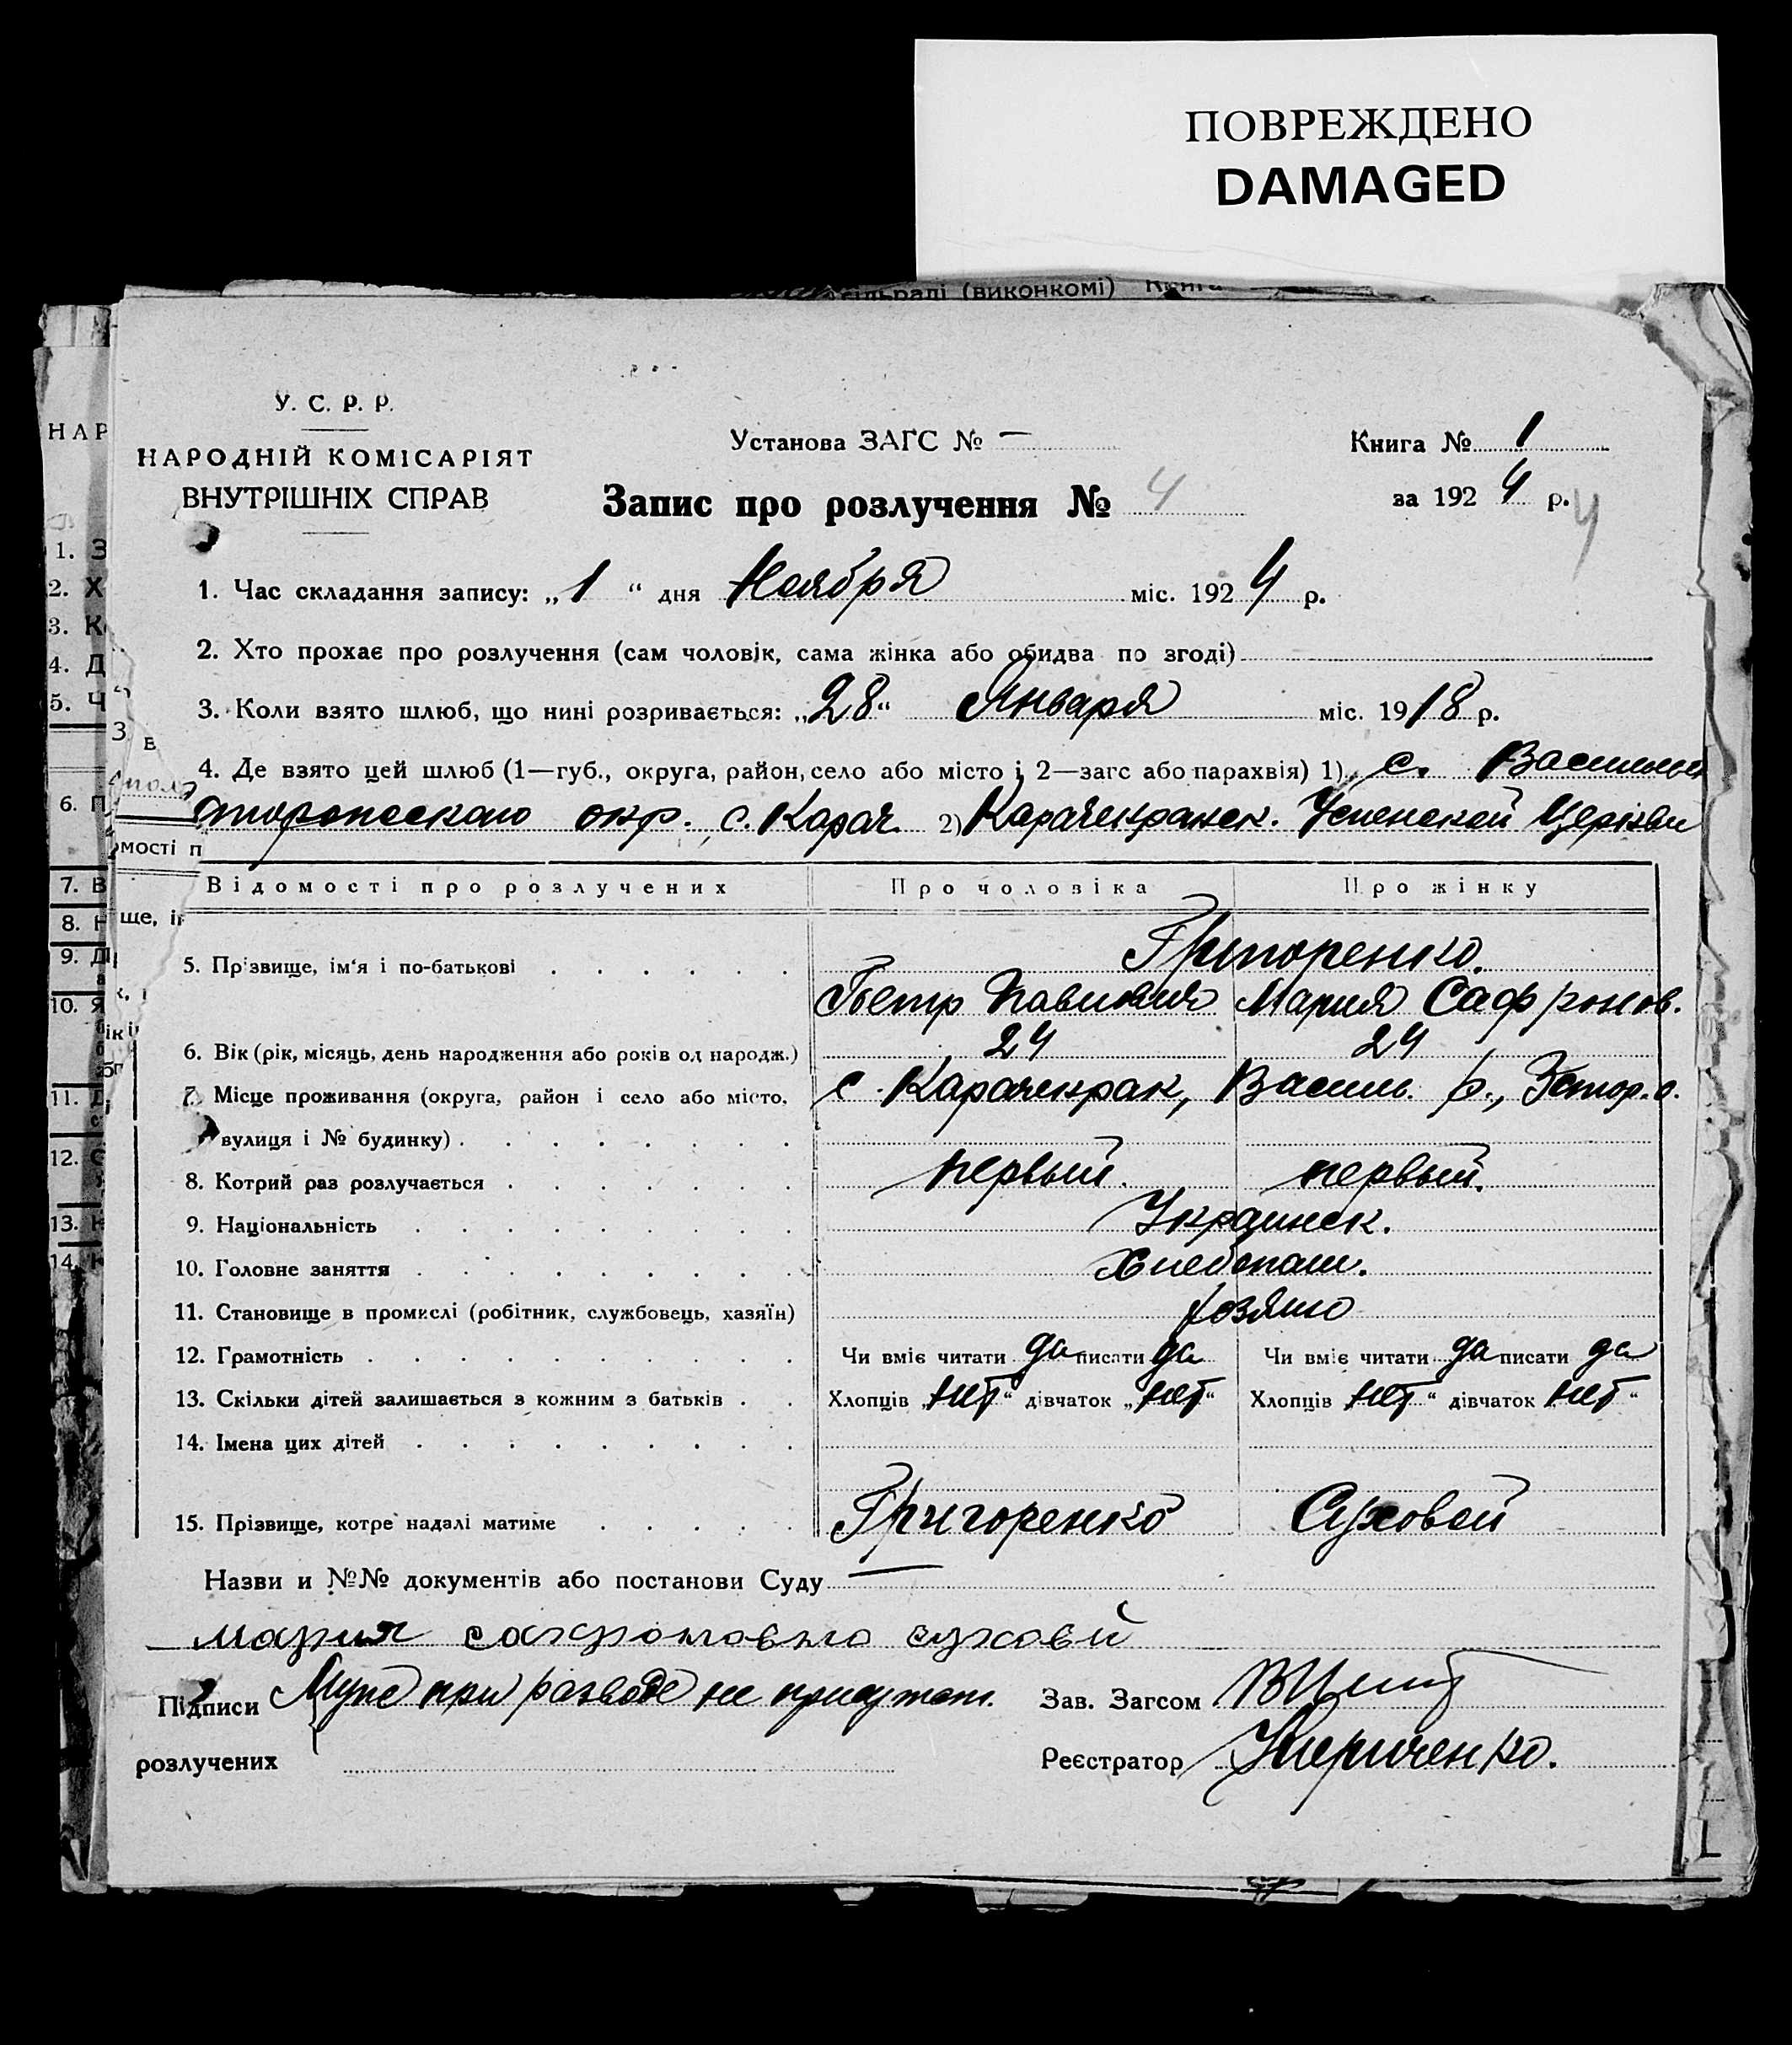 ПОВРЕЖДЕНО
DAMAGED
сільраді (виконкомі) Книга
У. С. Р. Р.
НАРОДНІЙ КОМІСАРІЯТ
ВНУТРІШНІХ СПРАВ
Установа ЗАГС № —
Книга № 1
за 1924 р. 4
Запис про розлучення № 4
1. Час складання запису: „1“ дня Ноября міс. 1924 р.
2. Хто прохає про розлучення (сам чоловік, сама жінка або обидва по згоді)
3. Коли взято шлюб, що нині розривається: „28“ Января міс. 1918 р.
4. Де взято цей шлюб (1—губ., округа, район, село або місто і 2—загс або парахвія) 1) с.
окр. с. Карач. 2) Карачекракск. Успенской Церкви
Відомості про розлучених Про чоловіка Про жінку
Григоренко.
5. Прізвище, ім‘я і по-батькові
Петр Павлович Мария Сафронов.
6. Вік (рік, місяць, день народження або років од народж.) 24 24
7. Місце проживання (округа, район і село або місто, с. Карачекрак, Василь. р., Запор. о.
вулиця і № будинку)
8. Котрий раз розлучається первый. первый.
9. Національність Украинск.
10. Головне заняття Хлебопаш.
11. Становище в промислі (робітник, службовець, хазяїн)
12. Грамотність Чи вміє читати да писати да Чи вміє читати да писати да
13. Скільки дітей залишається з кожним з батьків Хлопців „нет“ дівчаток „нет“ Хлопців нет“ дівчаток нет“
14. Імена цих дітей
15. Прізвище, котре надалі матиме Григоренко Суховей
Назви и №№ документів або постанови Суду —
мария сафроновна суховй
Підписи Муже при разводе не присутст. Зав. Загсом
розлучених Реєстратор Кириченко.